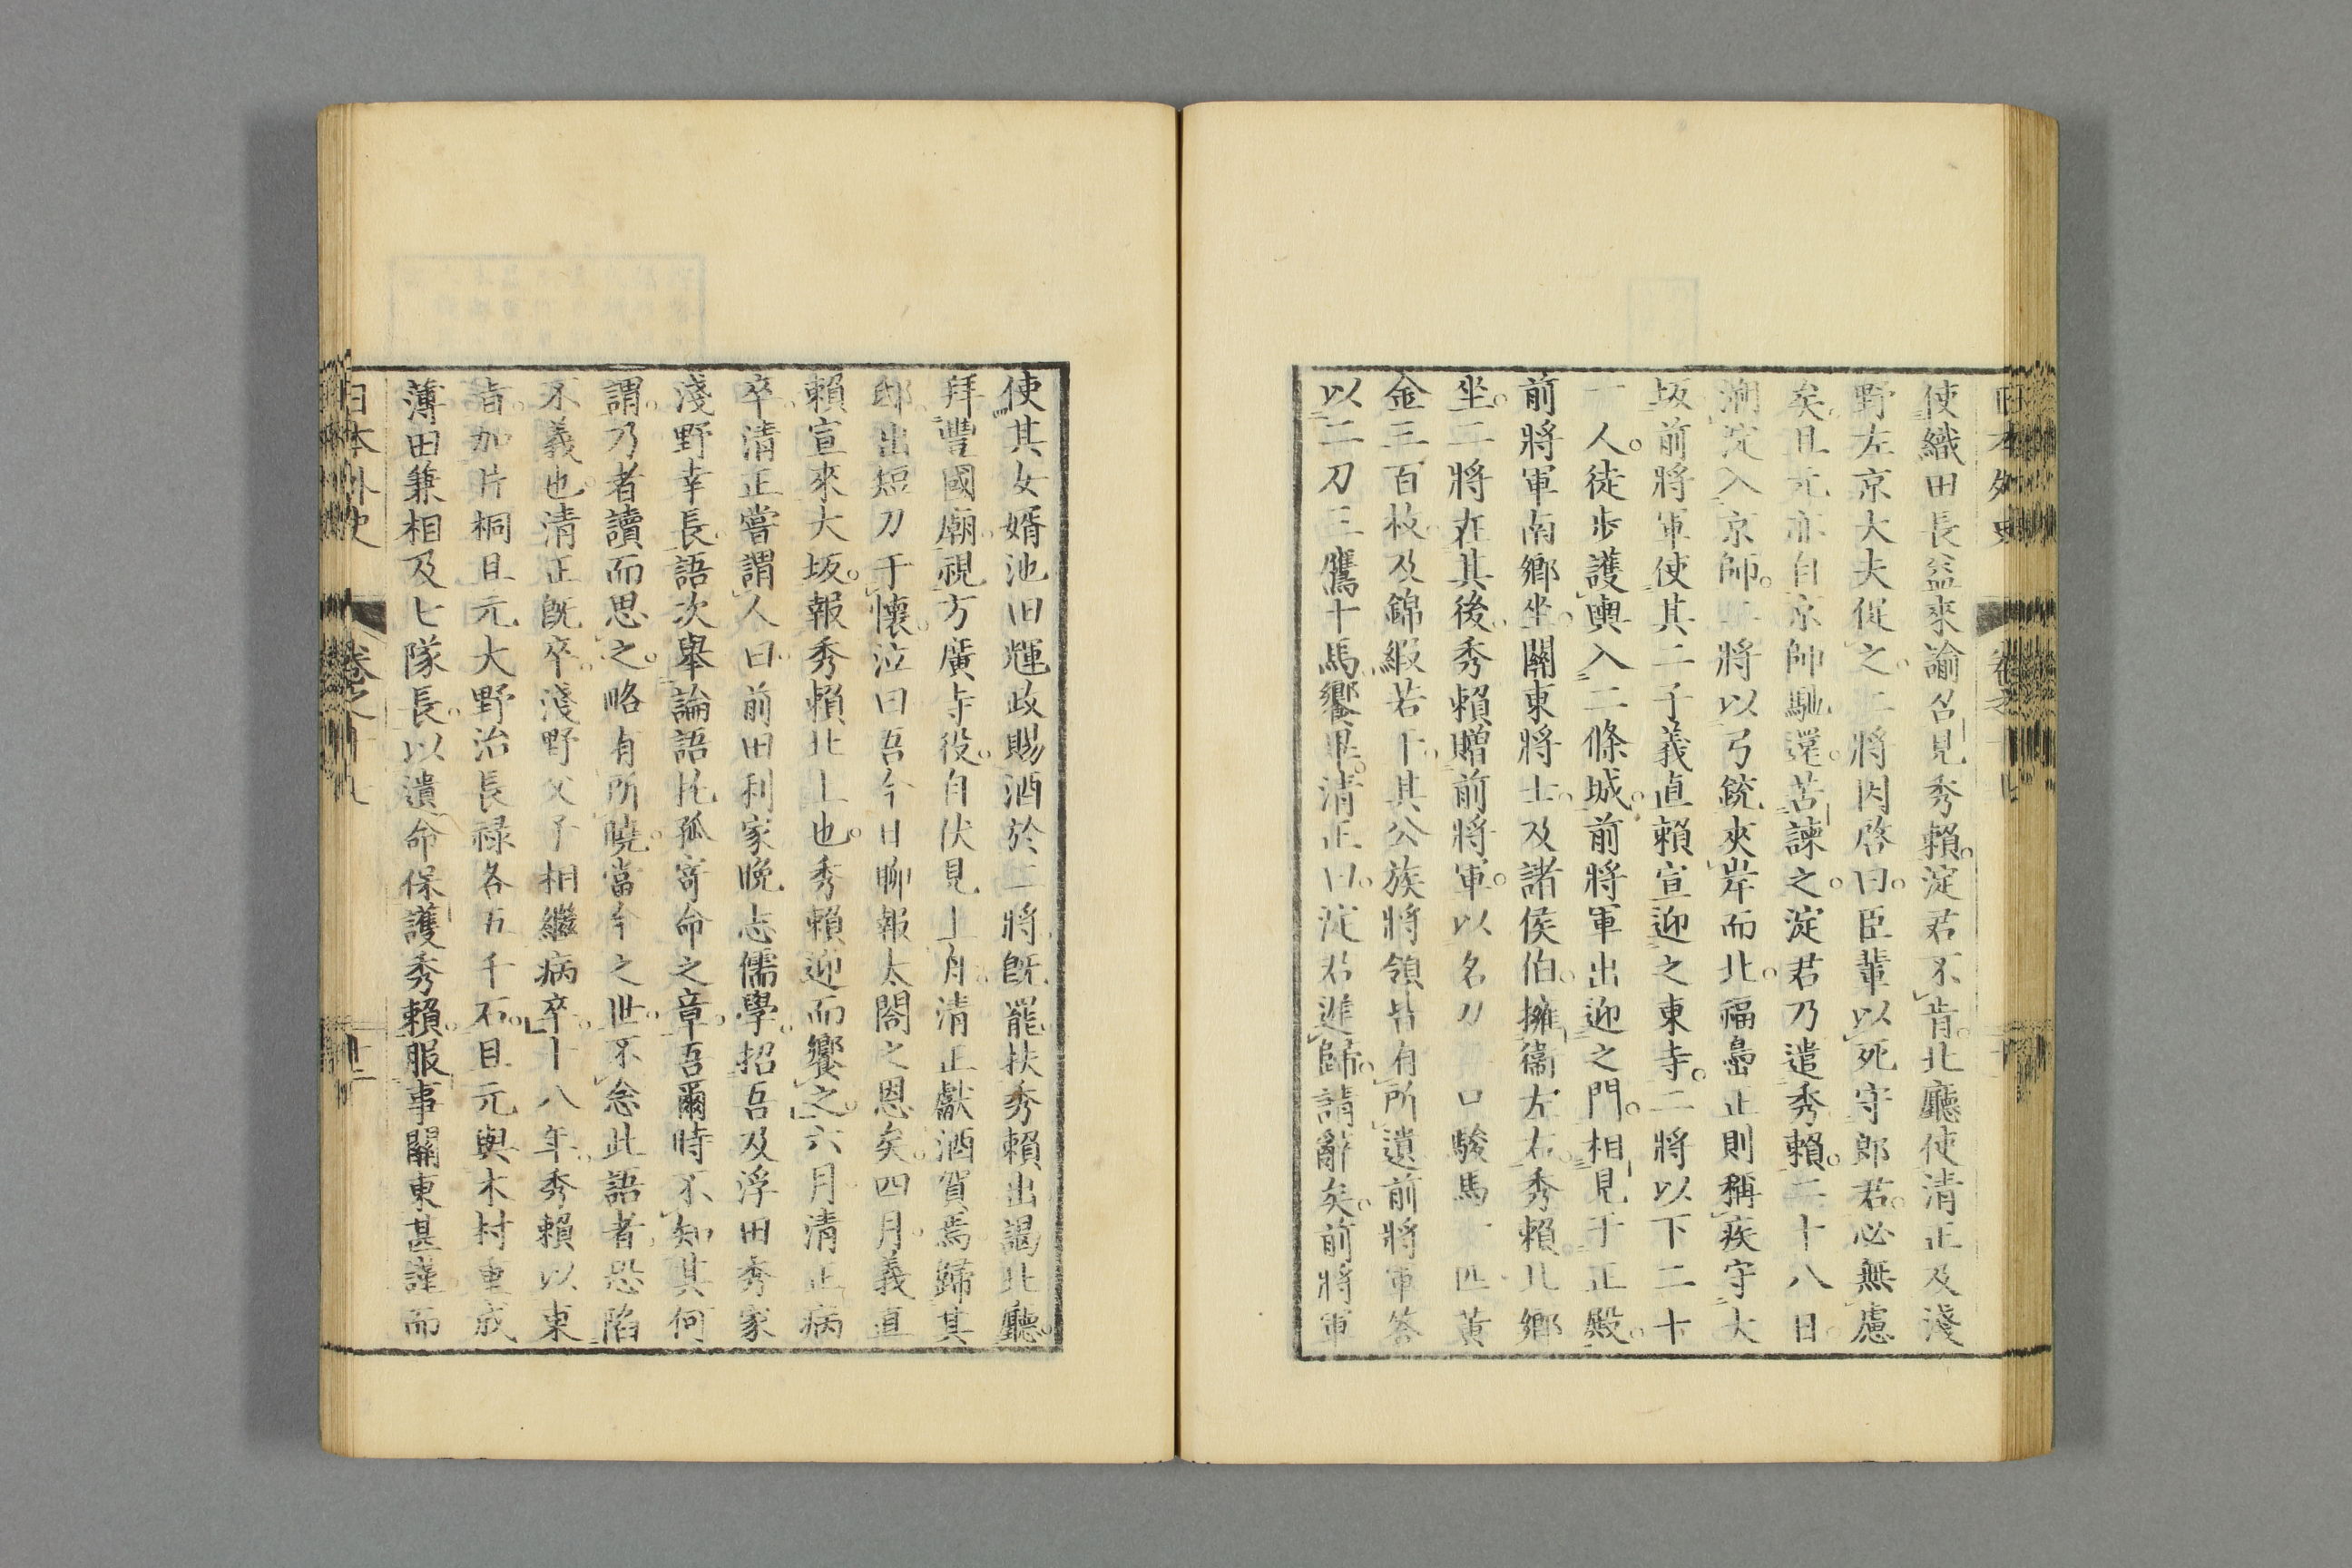 日本外史 卷之十九
使織田長益來諭召見秀賴。淀君不肯。北廳使清正及淺
野左京大夫促之。二將因啓曰。臣輩以死守郎君。必無慮
矣。且元亦自京師馳還。苦諫之。淀君乃遣秀賴。二十八日。
溯淀入京師。二將以弓銃夾岸而北。福島正則稱疾守大
坂前將軍使其二子義直賴宣迎之東寺。二將以下二十
一人。徒步護輿入二條城。前將軍出迎之門。相見于正殿。
前將軍南鄉坐。關東將士。及諸侯伯。擁衞左右。秀賴北鄉
坐。二將在其後。秀賴贈前將軍。以名刀 口駿馬一匹黃
金三百枚。及錦緞若干。其公族將領皆有所遺前將軍答
以二刀三鷹十馬。饗畢。清正曰。淀君遲歸。請辭矣。前將軍
使其女婿池田輝政賜酒於二將既罷扶秀賴出謁北廳。
拜豐國廟。視方廣寺役。自伏見上舟。清正獻酒賀焉歸其
邸。出短刀于懷。泣曰吾今日聊報太閤之恩矣。四月。義直
賴宣來大坂。報秀賴北上也。秀賴迎而饗之。六月清正病
卒。清正嘗謂人曰。前田利家晚志儒學。招吾及浮田秀家
淺野幸長。語次舉論語托孤寄命之章。吾爾時不知其何
謂。乃者讀而思之。略有所曉。當今之世。不念此語者。恐陷
不義也。清正既卒。淺野父子相繼病卒。十八年。秀賴以東
旨。加片桐且元大野治長祿各五千石。且元與木村重成
薄田兼相及七隊長。以潰命保護秀賴。服事關東甚謹而
日本外史 卷之十九 十二